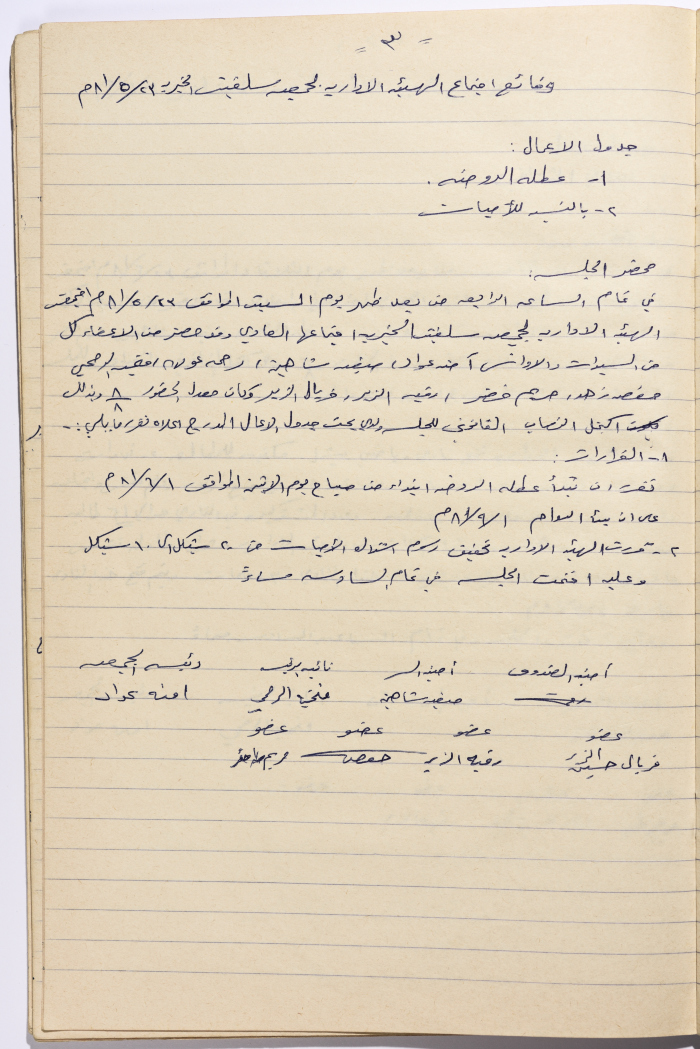 = ٣ =
وقائع اجتماع الهيئه الاداريه لجمعيه سلفيت الخيريه ٢٣/٥/٨١م
جدول الاعمال :
١- عطله الروضه .
٢- بالنسبه للأميات
محضر الجلسه :
في تمام الساعه الرابعه من بعد ظهر يوم السبت الموافق ٢٣/٥/٨١م اجتمعت
الهيئه الاداريه لجمعيه سلفيت الخيريه اجتماعها العادي وقد حضر من الاعضاء كل
من السيدات والاوانس آمنه عواد، صبفيه شاهين،
حفصه مريم خضر ، رقيه الزير ، فريال الزير وكان معدل الحضور ٨/٨ وبذلك
اكتمل النصاب القانوني للجلسه ولدى بحث جدول الاعمال المدرج اعلاه تقرر ما يلي :-
١- القرارات :
تقرر ان تبدأ عطله الروضه ابتداء من صباح يوم الاثنين الموافق ١/٦/٨١م
على ان يبدأ الدوام ١/٩/٨١م
٢- قررت الهيئه الاداريه تخفيض رسوم الأميات من ٢٠ شيكل الى ١٠ شيكل
وعليه اختتمت الجلسه في تمام السادسه مساءً
أمينه الصندوق أمينه السر نائبه الرئيسه رئيسه الجمعيه
صبفيه شاهين امنه عواد
عضو عضو عضو عضو
فريال حسين الزير رقيه الزير حفصه مريم